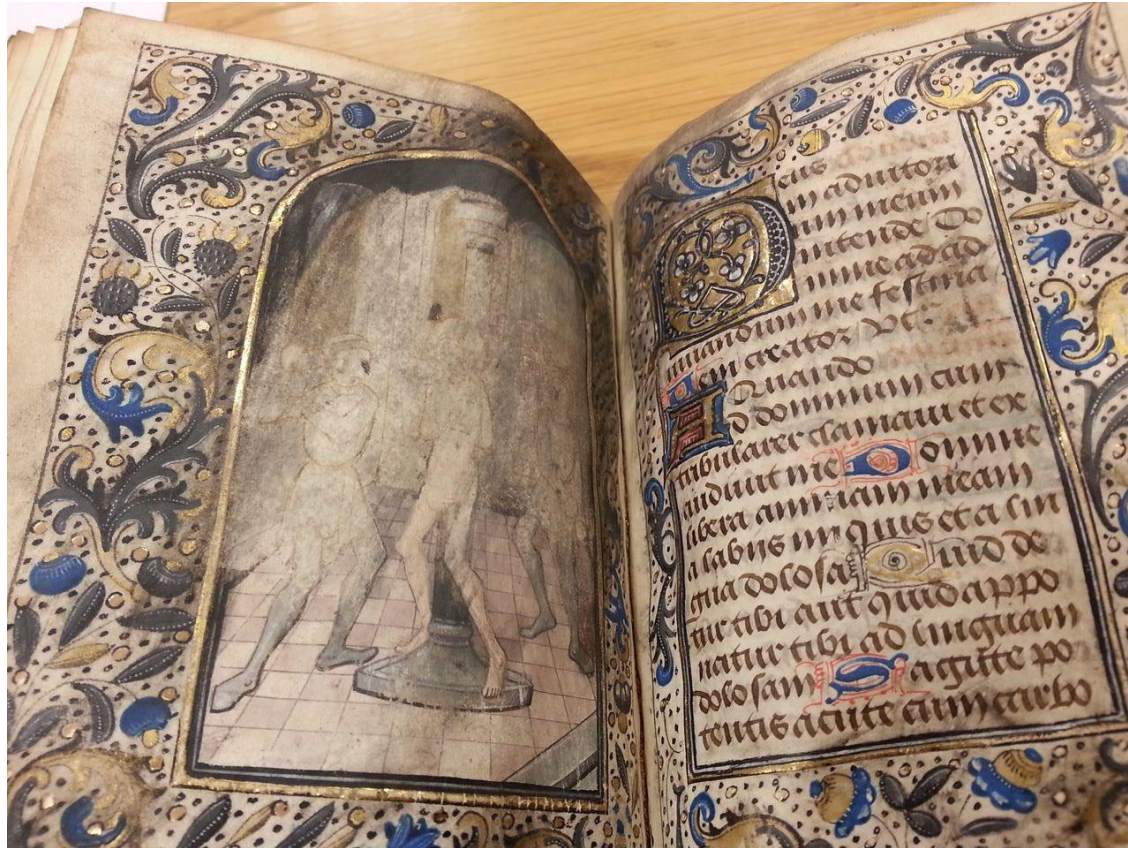 Deus
in adiutori
um meum
intende Do
mine ad ad
iuuandum me festina
Veni creator Vt
Quando
Ad dominum cum
tribularer clamaui et ex
audiuit me Domine
libera animam meam
a labijs iniquis et a lin
gua dolosa Quid de
tur tibi aut quid appo
natur tibi ad linguam
dolosam Sagitte po
tentis acute cum carbo